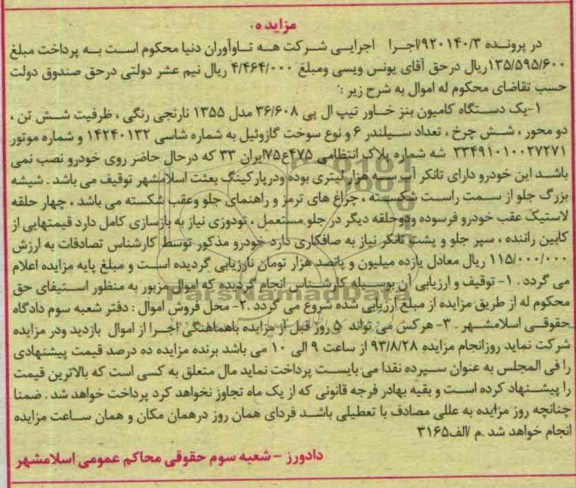 مزایده
در پرونده ۹۲۰۱۴۰/۳/اجرا اجرایی شرکت هه تاوآوران دنیا محکوم است به پرداخت مبلغ
۱۳۵/۵۹۵/۶۰۰ریال درحق آقای یونس ویسی ومبلغ ۴/۴۶۴/۰۰۰ ریال نیم عشر دولتی درحق صندوق دولت
حسب تقاضای محکوم له اموال به شرح زیر :
۱-یک دستگاه کامیون بنز خاور تیپ ال پی ۳۶/۶۰۸ مدل ۱۳۵۵ نارنجی رنگی ، ظرفیت شش تن ،
دو محور ، شش چرخ ، تعداد سیلندر ۶ و نوع سوخت گازوئیل به شماره شاسی ۱۴۲۴۰۱۳۲ و شماره موتور
۳۳۴۹۱۰۱۰۰۲۷۲۷۱ شه شماره پلاک انتظامی ۴۷۵ع۷۵ایران ۳۳ که درحال حاضر روی خودرو نصب نمی
باشد این خودرو دارای تانکر آب سه هزار لیتری بوده ودرپارکینگ بعثت اسلامشهر توقیف می باشد . شیشه
بزرگ جلو از سمت راست شکسته ، چراغ های ترمز و راهنمای جلو وعقب شکسته می باشد ، چهار حلقه
لاستیک عقب خودرو فرسوده ودوحلقه دیگر در جلو مستعمل ، تودوزی نیاز به بازسازی کامل دارد قیمتهایی از
کابین راننده ، سپر جلو و پشت تانکر نیاز به صافکاری دارد خودرو مذکور توسط کارشناس تصادفات به ارزش
۱۱۵/۰۰۰/۰۰۰ ریال معادل یازده میلیون و پانصد هزار تومان ارزیابی گردیده است و مبلغ پایه مزایده اعلام
می گردد . ۱- توقیف و ارزیابی آن بوسیله کارشناس انجام گردیده که اموال مزبور به منظور استیفای حق
محکوم له از طریق مزایده از مبلغ ارزیابی شده شروع می گردد .۲- محل فروش اموال : دفتر شعبه سوم دادگاه
حقوقی اسلامشهر . ۳- هرکس می تواند ۵ روز قبل از مزایده باهماهنگی اجرا از اموال بازدید ودر مزایده
شرکت نماید روزانجام مزایده ۹۳/۸/۲۸ از ساعت ۹ الی ۱۰ می باشد برنده مزایده ده درصد قیمت پیشنهادی
را فی المجلس به عنوان سپرده نقدا می بایست پرداخت نماید مال متعلق به کسی است که بالاترین قیمت
را پیشنهاد کرده است و بقیه بهادر فرجه قانونی که از یک ماه تجاوز نخواهد کرد پرداخت خواهد شد . ضمنا
چنانچه روز مزایده به عللی مصادف با تعطیلی باشد فردای همان روز درهمان مکان و همان ساعت مزایده
انجام خواهد شد .م /الف۳۱۶۵
دادورز - شعبه سوم حقوقی محاکم عمومی اسلامشهر